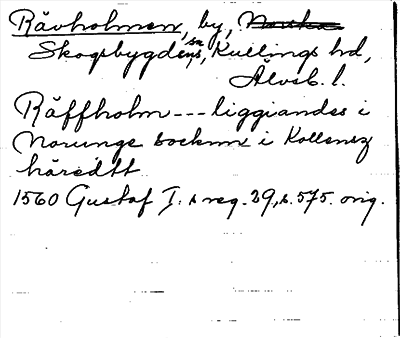 Rävholmen, by, Norska
Skogsbygdens sn, Kullings hd,
Älvsb. l.
Räffholm --- liggiandes i
Norunge socknn i Kollensz
häredtt
1560 Gustaf I. s reg. 29, s. 575. orig.